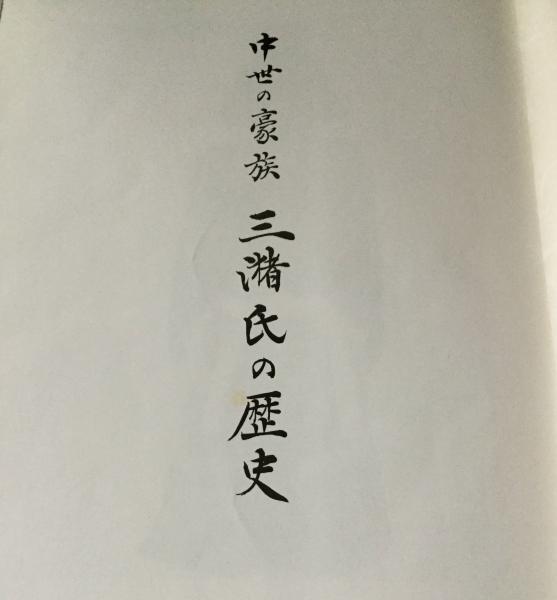 中世の豪族 三潴氏の歴史